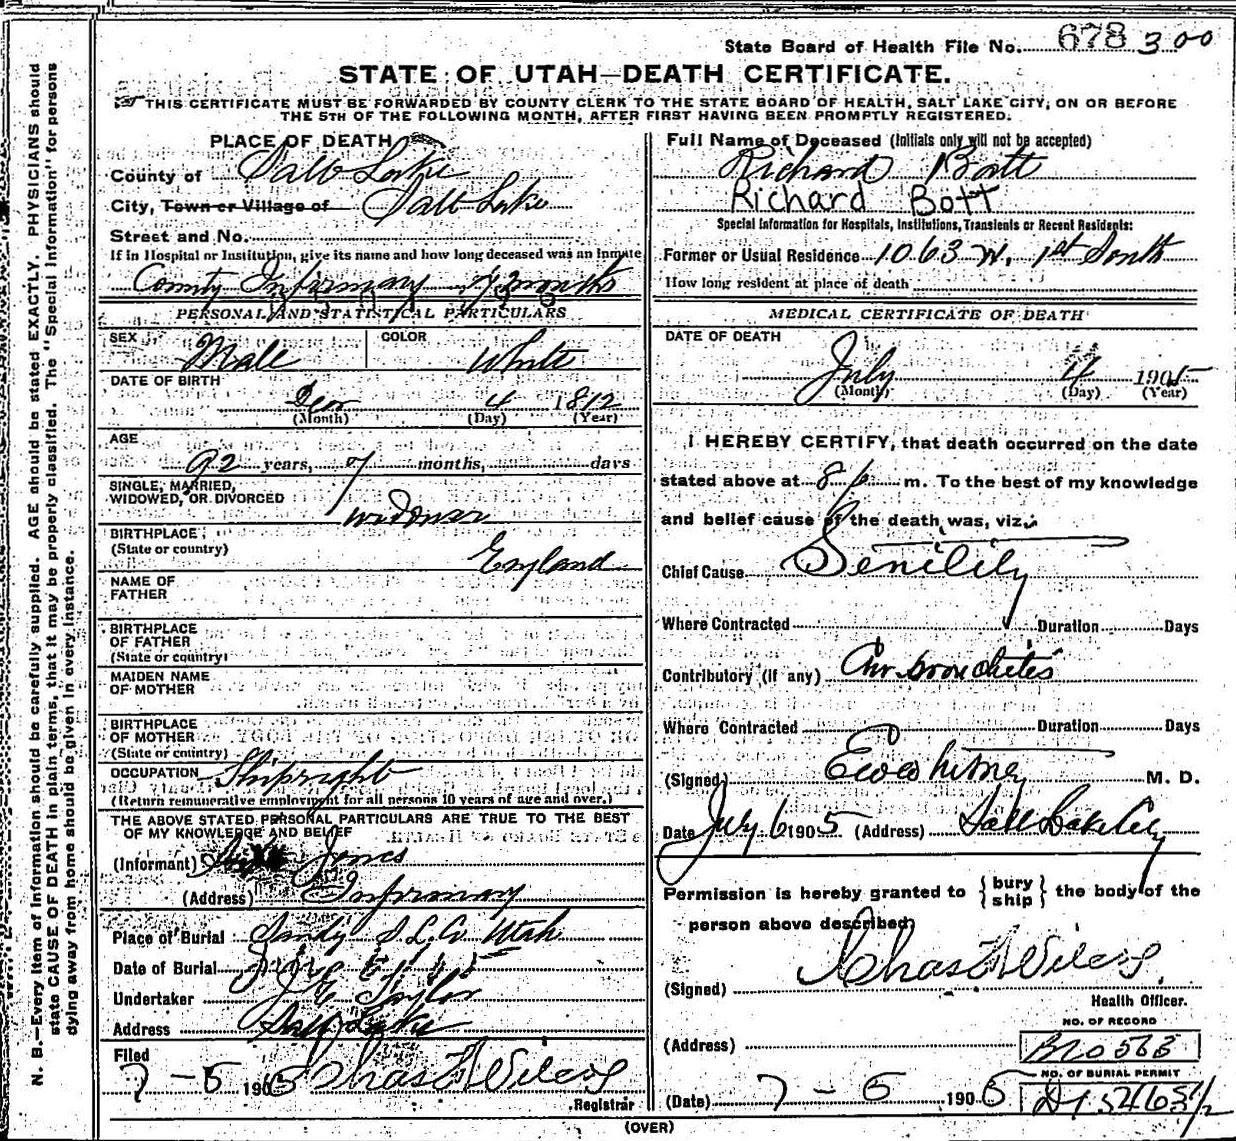 State Board of Health File No. 678 300
STATE OF UTAH—DEATH CERTIFICATE.
THIS CERTIFICATE MUST BE FORWARDED BY COUNTY CLERK TO THE STATE BOARD OF HEALTH, SALT LAKE CITY, ON OR BEFORE
THE 5TH OF THE FOLLOWING MONTH, AFTER FIRST HAVING BEEN PROMPTLY REGISTERED.
N. B.—Every item of Information should be carefully supplied. AGE should be stated EXACTLY. PHYSICIANS should
state CAUSE OF DEATH in plain terms, that it may be properly classified. The "Special Information" for persons
dying away from home should be given in every instance.
PLACE OF DEATH
County of Salt Lake
City, Town or Village of Salt Lake
Street and No.
If in Hospital or Institution, give its name and how long deceased was an Inmate
County Infirmary 7 months
PERSONAL AND STATISTICAL PARTICULARS
SEX Male COLOR White
DATE OF BIRTH
Dec 4 1812
(Month) (Day) (Year)
AGE
92 years, 7 months, days
SINGLE, MARRIED,
WIDOWED, OR DIVORCED
widower
BIRTHPLACE
(State or country) England
NAME OF
FATHER
BIRTHPLACE
OF FATHER
(State or country)
MAIDEN NAME
OF MOTHER
BIRTHPLACE
OF MOTHER
(State or country)
OCCUPATION Shipright
(Return remunerative employment for all persons 10 years of age and over.)
THE ABOVE STATED PERSONAL PARTICULARS ARE TRUE TO THE BEST
OF MY KNOWLEDGE AND BELIEF
(Informant) Jones
(Address) Infirmary
Place of Burial Sandy S.L.Co. Utah
Date of Burial
Undertaker J E Taylor
Address Salt Lake
Filed
7-5 1905 Chas F Wilcox
Registrar
Full Name of Deceased (Initials only will not be accepted)
Richard Bott
Richard Bott
Special Information for Hospitals, Institutions, Transients or Recent Residents:
Former or Usual Residence 1063 W. 1st South
How long resident at place of death
MEDICAL CERTIFICATE OF DEATH
DATE OF DEATH
July 4 1905
(Month) (Day) (Year)
I HEREBY CERTIFY, that death occurred on the date
stated above at 8 p m. To the best of my knowledge
and belief cause of the death was, viz.
Chief Cause Senility
Where Contracted Duration Days
Contributory (if any) Chr bronchitis
Where Contracted Duration Days
(Signed) Ewd Whitney M. D.
Date July 6 1905 (Address) Salt Lake City
Permission is hereby granted to { bury ship } the body of the
person above described,
(Signed) Chas F Wilcox
Health Officer.
NO. OF RECORD
(Address) B20563
NO. OF BURIAL PERMIT
(Date) 7-5 1905
(OVER)